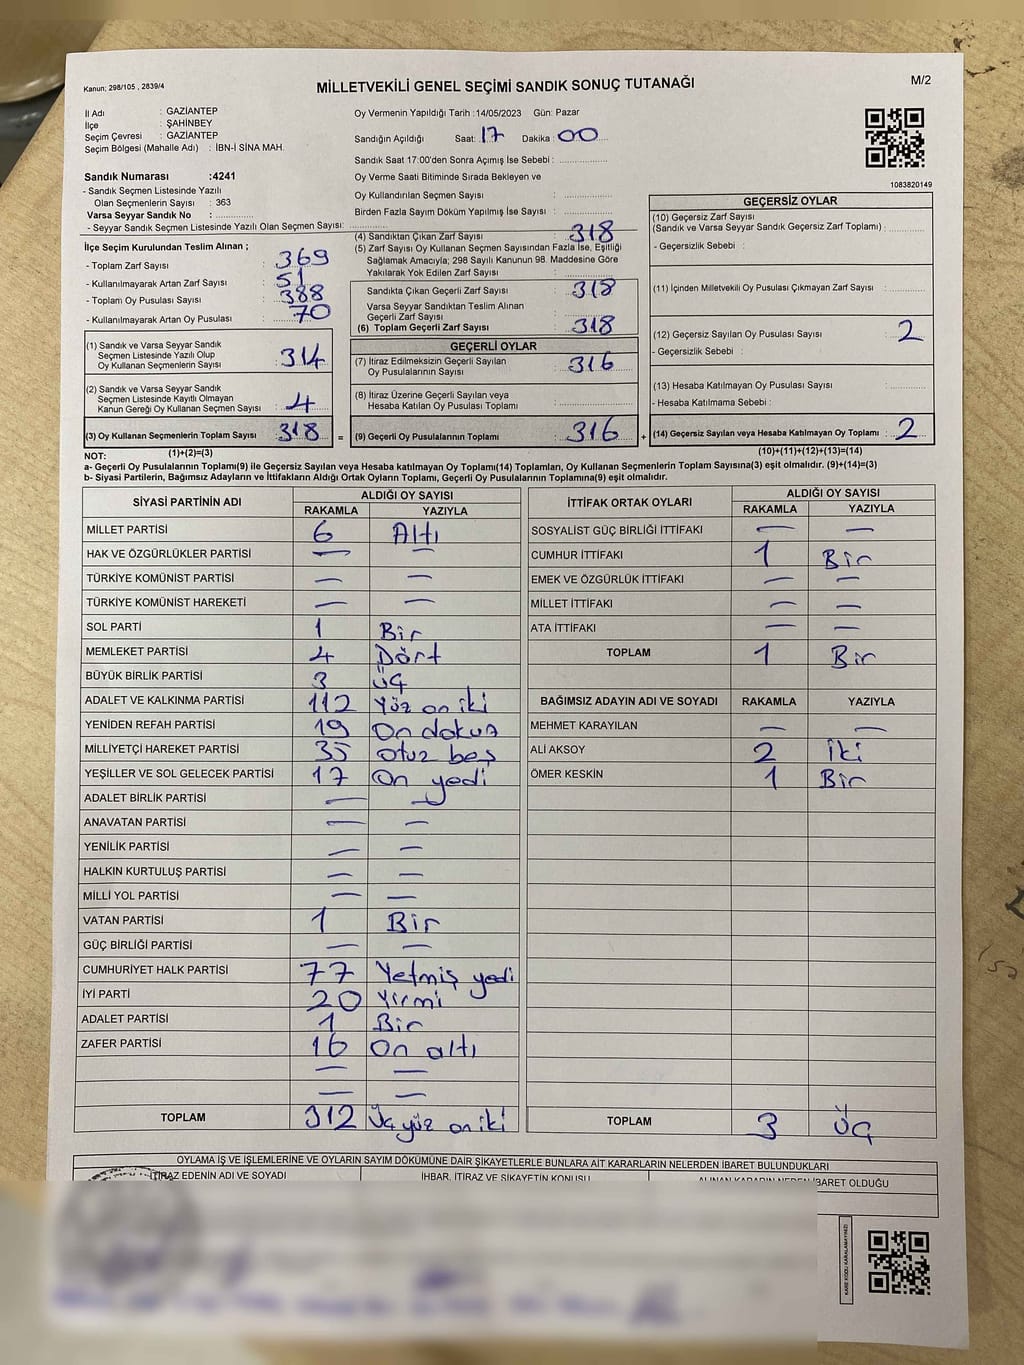 Kanun: 298/105 , 2839/4
MİLLETVEKİLİ GENEL SEÇİMİ SANDIK SONUÇ TUTANAĞI
M/2
İl Adı : GAZİANTEP
İlçe : ŞAHİNBEY
Seçim Çevresi : GAZİANTEP
Seçim Bölgesi (Mahalle Adı) : İBN-İ SİNA MAH.
Sandık Numarası :4241
- Sandık Seçmen Listesinde Yazılı
Olan Seçmenlerin Sayısı : 363
Varsa Seyyar Sandık No :
- Seyyar Sandık Seçmen Listesinde Yazılı Olan Seçmen Sayısı:
Oy Vermenin Yapıldığı Tarih :14/05/2023 Gün: Pazar
Sandığın Açıldığı Saat: 17 Dakika : 00
Sandık Saat 17:00'den Sonra Açımış İse Sebebi :
Oy Verme Saati Bitiminde Sırada Bekleyen ve
Oy Kullandırılan Seçmen Sayısı :
Birden Fazla Sayım Döküm Yapılmış İse Sayısı :
1083820149
İlçe Seçim Kurulundan Teslim Alınan ;
- Toplam Zarf Sayısı : 369
- Kullanılmayarak Artan Zarf Sayısı : 51
- Toplam Oy Pusulası Sayısı : 388
- Kullanılmayarak Artan Oy Pusulası : 70
(1) Sandık ve Varsa Seyyar Sandık
Seçmen Listesinde Yazılı Olup
Oy Kullanan Seçmenlerin Sayısı : 314
(2) Sandık ve Varsa Seyyar Sandık
Seçmen Listesinde Kayıtlı Olmayan
Kanun Gereği Oy Kullanan Seçmen Sayısı : 4
(3) Oy Kullanan Seçmenlerin Toplam Sayısı : 318 =
(4) Sandıktan Çıkan Zarf Sayısı : 318
(5) Zarf Sayısı Oy Kullanan Seçmen Sayısından Fazla İse, Eşitliği
Sağlamak Amacıyla; 298 Sayılı Kanunun 98. Maddesine Göre
Yakılarak Yok Edilen Zarf Sayısı :
Sandıkta Çıkan Geçerli Zarf Sayısı : 318
Varsa Seyyar Sandıktan Teslim Alınan
Geçerli Zarf Sayısı :
(6) Toplam Geçerli Zarf Sayısı : 318
GEÇERLİ OYLAR
(7) İtiraz Edilmeksizin Geçerli Sayılan
Oy Pusulalarının Sayısı : 316
(8) İtiraz Üzerine Geçerli Sayılan veya
Hesaba Katılan Oy Pusulası Toplamı :
(9) Geçerli Oy Pusulalarının Toplamı : 316 +
GEÇERSİZ OYLAR
(10) Geçersiz Zarf Sayısı
(Sandık ve Varsa Seyyar Sandık Geçersiz Zarf Toplamı) :
- Geçersizlik Sebebi :
(11) İçinden Milletvekili Oy Pusulası Çıkmayan Zarf Sayısı :
(12) Geçersiz Sayılan Oy Pusulası Sayısı : 2
- Geçersizlik Sebebi :
(13) Hesaba Katılmayan Oy Pusulası Sayısı :
- Hesaba Katılmama Sebebi :
(14) Geçersiz Sayılan veya Hesaba Katılmayan Oy Toplamı : 2
NOT: (1)+(2)=(3) (10)+(11)+(12)+(13)=(14)
a- Geçerli Oy Pusulalarının Toplamı(9) ile Geçersiz Sayılan veya Hesaba katılmayan Oy Toplamı(14) Toplamları, Oy Kullanan Seçmenlerin Toplam Sayısına(3) eşit olmalıdır. (9)+(14)=(3)
b- Siyasi Partilerin, Bağımsız Adayların ve İttifakların Aldığı Ortak Oyların Toplamı, Geçerli Oy Pusulalarının Toplamına(9) eşit olmalıdır.
SİYASİ PARTİNİN ADI ALDIĞI OY SAYISI
RAKAMLA YAZIYLA
MİLLET PARTİSİ 6 Altı
HAK VE ÖZGÜRLÜKLER PARTİSİ — —
TÜRKİYE KOMÜNİST PARTİSİ — —
TÜRKİYE KOMÜNİST HAREKETİ — —
SOL PARTİ 1 Bir
MEMLEKET PARTİSİ 4 Dört
BÜYÜK BİRLİK PARTİSİ 3 üç
ADALET VE KALKINMA PARTİSİ 112 Yüz on iki
YENİDEN REFAH PARTİSİ 19 On dokuz
MİLLİYETÇİ HAREKET PARTİSİ 35 otuz beş
YEŞİLLER VE SOL GELECEK PARTİSİ 17 On yedi
ADALET BİRLİK PARTİSİ — —
ANAVATAN PARTİSİ — —
YENİLİK PARTİSİ — —
HALKIN KURTULUŞ PARTİSİ — —
MİLLİ YOL PARTİSİ — —
VATAN PARTİSİ 1 Bir
GÜÇ BİRLİĞİ PARTİSİ — —
CUMHURİYET HALK PARTİSİ 77 Yetmiş yedi
İYİ PARTİ 20 Yirmi
ADALET PARTİSİ 1 Bir
ZAFER PARTİSİ 16 On altı
— —
— —
TOPLAM 312 Üç yüz on iki
İTTİFAK ORTAK OYLARI ALDIĞI OY SAYISI
RAKAMLA YAZIYLA
SOSYALİST GÜÇ BİRLİĞİ İTTİFAKI — —
CUMHUR İTTİFAKI 1 Bir
EMEK VE ÖZGÜRLÜK İTTİFAKI — —
MİLLET İTTİFAKI — —
ATA İTTİFAKI — —
TOPLAM 1 Bir
BAĞIMSIZ ADAYIN ADI VE SOYADI RAKAMLA YAZIYLA
MEHMET KARAYILAN — —
ALİ AKSOY 2 İki
ÖMER KESKİN 1 Bir
TOPLAM 3 Üç
OYLAMA İŞ VE İŞLEMLERİNE VE OYLARIN SAYIM DÖKÜMÜNE DAİR ŞİKAYETLERLE BUNLARA AİT KARARLARIN NELERDEN İBARET BULUNDUKLARI
İTİRAZ EDENİN ADI VE SOYADI İHBAR, İTİRAZ VE ŞİKAYETİN KONUSU ALINAN KARARIN NEDEN İBARET OLDUĞU
KARE KODU KARALAMAYINIZ!